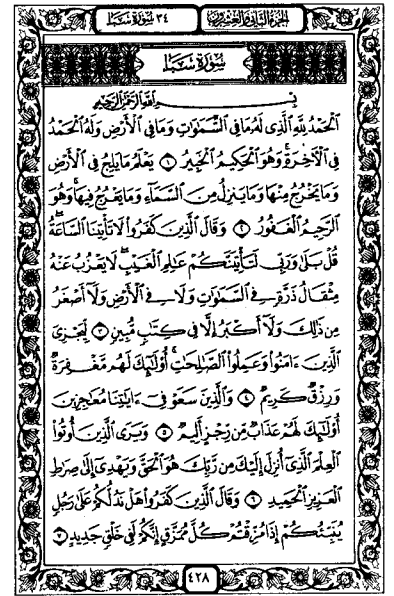 الجزء الثاني والعشرون
٣٤ سورة سبأ
سورة سبأ
بسم الله الرحمن الرحيم
الْحَمْدُ لِلَّهِ الَّذِي لَهُ مَا فِي السَّمَٰوَٰتِ وَمَا فِي الْأَرْضِ وَلَهُ الْحَمْدُ
فِي الْآخِرَةِ ۚ وَهُوَ الْحَكِيمُ الْخَبِيرُ ١ يَعْلَمُ مَا يَلِجُ فِي الْأَرْضِ
وَمَا يَخْرُجُ مِنْهَا وَمَا يَنزِلُ مِنَ السَّمَاءِ وَمَا يَعْرُجُ فِيهَا ۚ وَهُوَ
الرَّحِيمُ الْغَفُورُ ٢ وَقَالَ الَّذِينَ كَفَرُوا لَا تَأْتِينَا السَّاعَةُ ۖ
قُلْ بَلَىٰ وَرَبِّي لَتَأْتِيَنَّكُمْ عَٰلِمِ الْغَيْبِ ۖ لَا يَعْزُبُ عَنْهُ
مِثْقَالُ ذَرَّةٍ فِي السَّمَٰوَٰتِ وَلَا فِي الْأَرْضِ وَلَا أَصْغَرُ
مِن ذَٰلِكَ وَلَا أَكْبَرُ إِلَّا فِي كِتَٰبٍ مُّبِينٍ ٣ لِّيَجْزِيَ
الَّذِينَ ءَامَنُوا وَعَمِلُوا الصَّٰلِحَٰتِ ۚ أُولَٰئِكَ لَهُم مَّغْفِرَةٌ
وَرِزْقٌ كَرِيمٌ ٤ وَالَّذِينَ سَعَوْ فِي ءَايَٰتِنَا مُعَٰجِزِينَ
أُولَٰئِكَ لَهُمْ عَذَابٌ مِّن رِّجْزٍ أَلِيمٌ ٥ وَيَرَى الَّذِينَ أُوتُوا
الْعِلْمَ الَّذِي أُنزِلَ إِلَيْكَ مِن رَّبِّكَ هُوَ الْحَقَّ وَيَهْدِي إِلَىٰ صِرَٰطِ
الْعَزِيزِ الْحَمِيدِ ٦ وَقَالَ الَّذِينَ كَفَرُوا هَلْ نَدُلُّكُمْ عَلَىٰ رَجُلٍ
يُنَبِّئُكُمْ إِذَا مُزِّقْتُمْ كُلَّ مُمَزَّقٍ إِنَّكُمْ لَفِي خَلْقٍ جَدِيدٍ ٧
٤٢٨